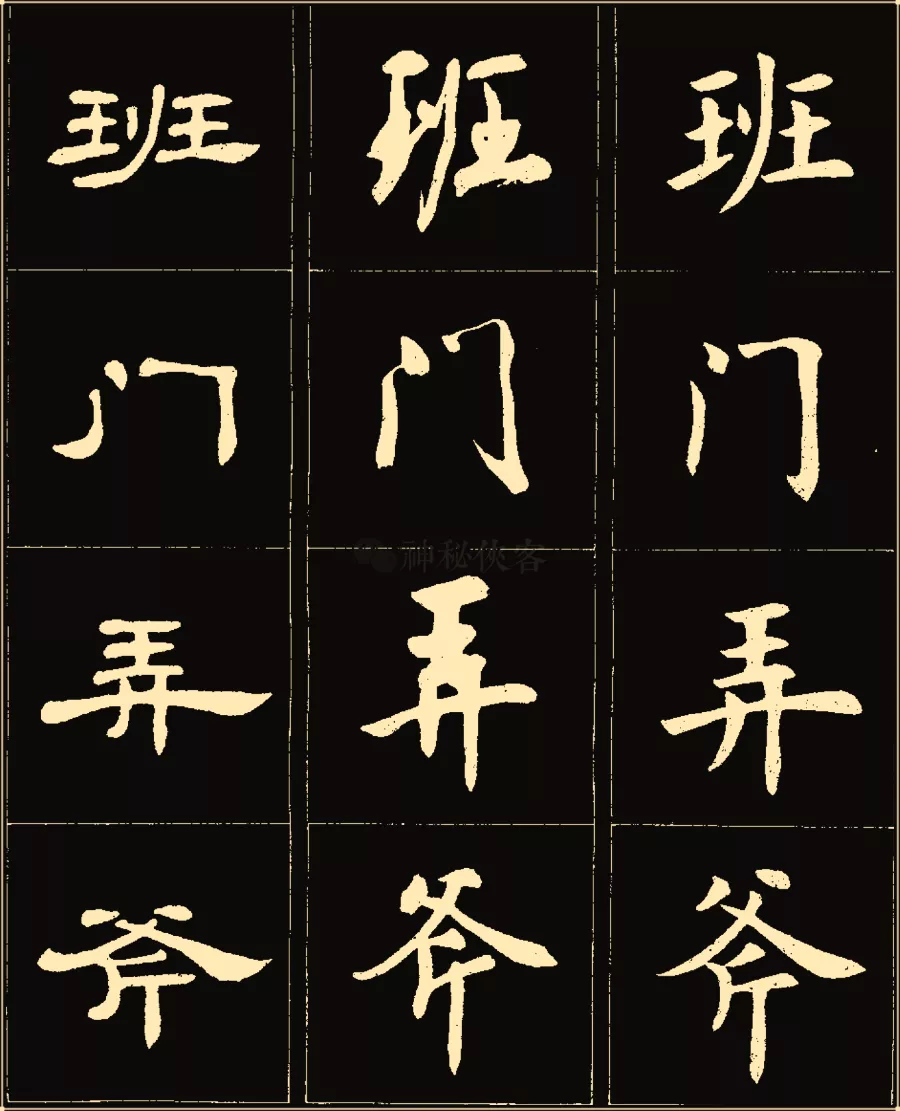 班 班 班
门 门 门
弄 弄 弄
神秘侠客
斧 斧 斧